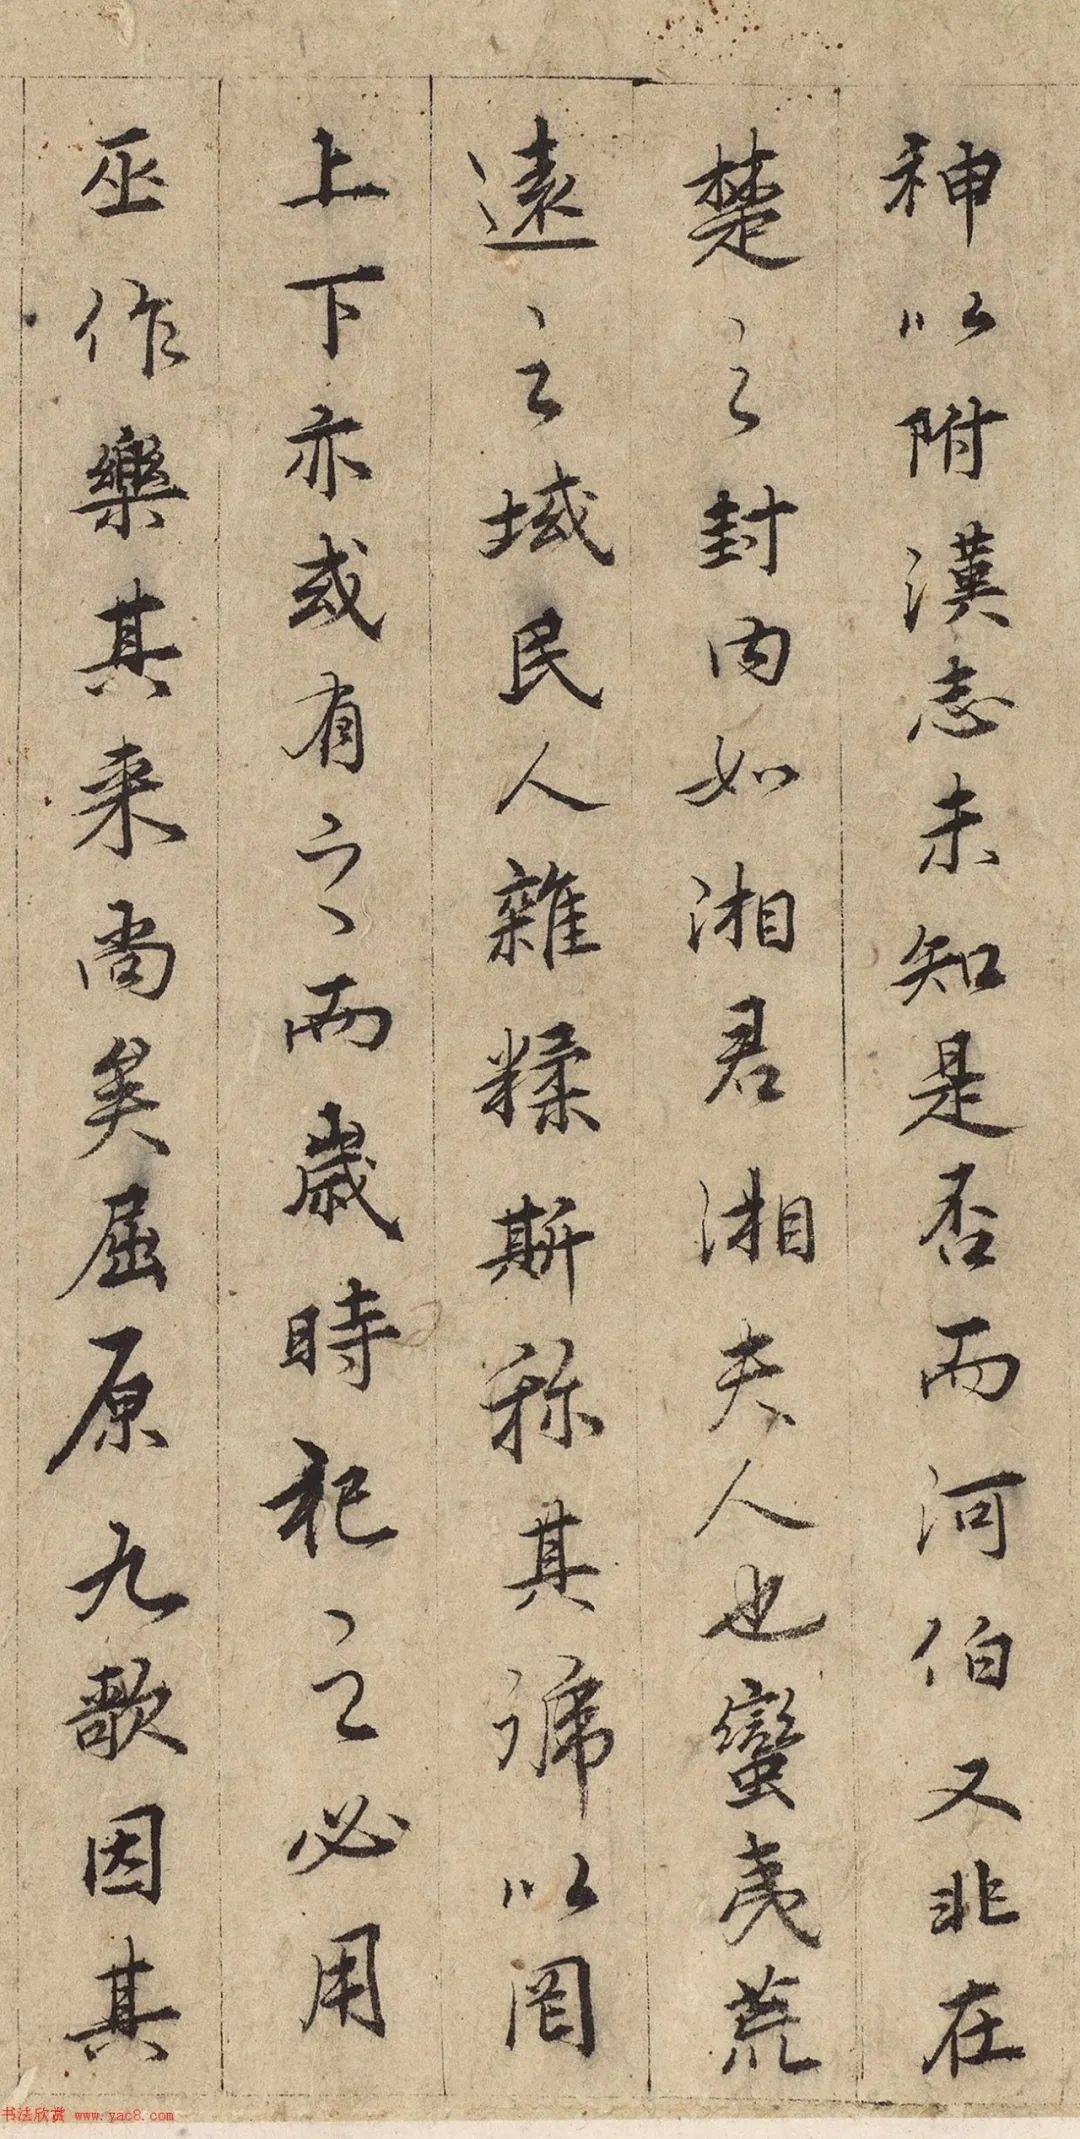 神以附漢志未知是否而河伯又非在
楚之封内如湘君湘夫人也蠻夷荒
遠之域民人雜糅斯称其號以罔
上下亦或有之而歲時祀之必用
巫作樂其来尚矣屈原九歌因其
书法欣赏 www.yac8.com